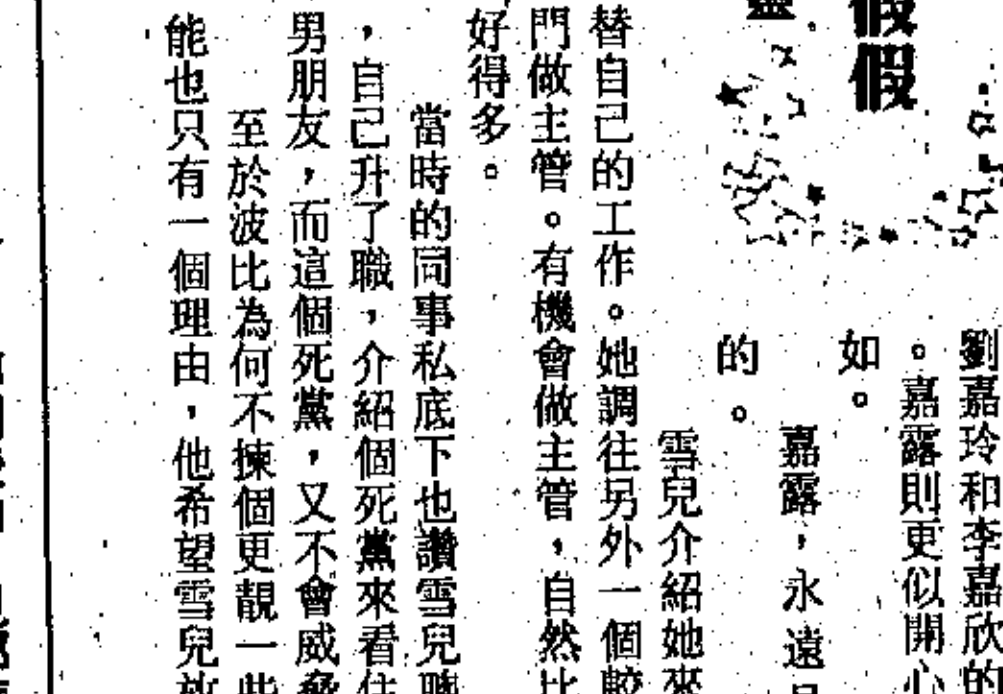 劉嘉玲和李嘉欣的
。嘉露則更似開心
如。
嘉露，永遠
的。
雪兒介紹她來
替自己的工作。她調往另外一個較
門做主管。有機會做主管，自然比
好得多。
當時的同事私底下也讚雪兒聰
，自己升了職，介紹個死黨來看住
男朋友，而這個死黨，又不會威脅
至於波比為何不揀個更靚一些
能也只有一個理由，他希望雪兒放
假假